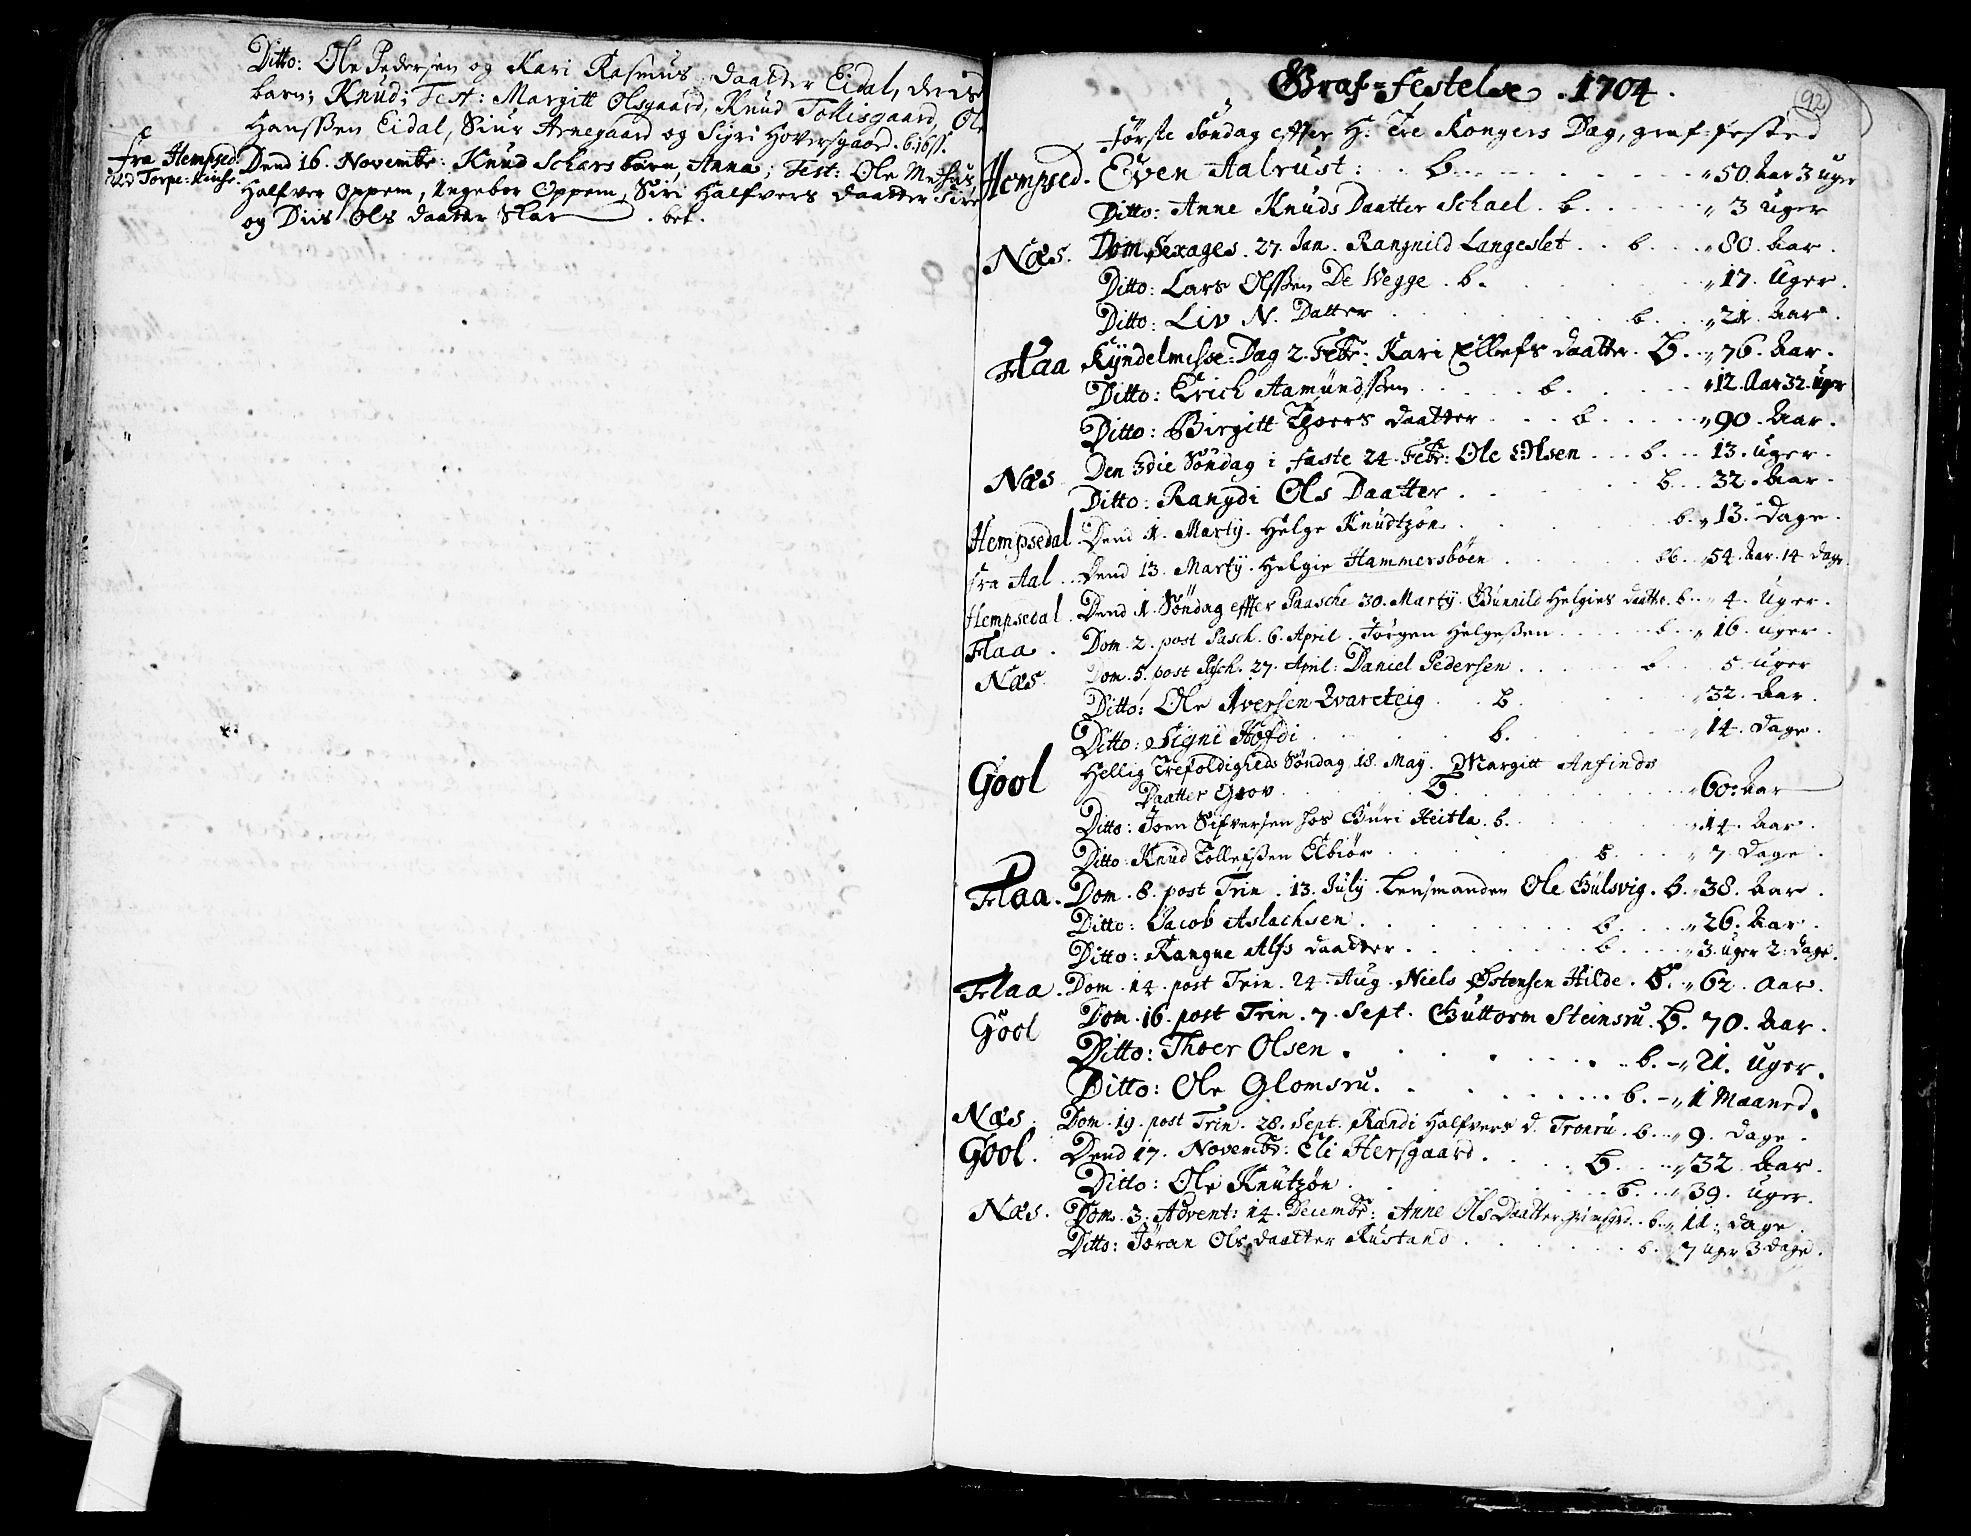 Ditto: Ole Pedersen og Kari Rasmus daatter Eidal, deris
barn; Knud; Test: Margitt Olsgaard, Knud Tollisgaard, Ole
Hansßen Eidal, Siur Arnegaard og Sigri Hoversgaard.
fra Hempsed. Dend 16. Novembr: Knud Schars barn, Anna; Test: Ole
ved Torpe-Kirche. Halfver Oppem, Ingebor Oppem, Siri Halfvers daatter
og Diis Ols daatter Skar . bet.
Graf-festelse . 1704 .
92
Første Søndag effter H: Tre Kongers Dag, graf-fested
Hempsed. Even Aalrust: . . b. . . . „ 50. Aar 3 uger
Ditto: Anne Knuds Daatter Schael . b. . . „ 3 uger
Næs. Dom. Sexages. 27. Jan. Rangnild Langeslet . . b . . „ 80. Aar .
Ditto: Lars Olsßen De Wegge . b. . . „ 17. Uger.
Ditto: Liv N. Datter . . b. . „ 21. Aar .
Flaa Kyndelmisse-Dag 2. Febr: Kari Ellefs daatter. b. . „ 76. Aar.
Ditto: Erich Aamundßen . . b. . . „ 12. Aar 32. Uger
Ditto: Birgitt Thoers daatter . . b. . . „ 90. Aar.
Næs Den 3die Søndag i faste 24. Febr: Ole Olsen . . b. . . 13. uger.
Ditto: Rangdi Ols Daatter . . b. . 32. Aar.
Hempsedal Dend 1. Martij. Helge Knudtzøn . . b. „ 13. Dage.
fra Aal . Dend 13. Martij. Helgie Hammersbøen . . bb. . „ 54. Aar. 14 dage.
Hempsedal . Dend 1. Søndag effter Paasche 30. Martij. Gunnild Helgies daatter. b. . „ 4. Uger.
Flaa . Dom. 2. post Pasch. 6. April. Jørgen Helgeßen . . b. . „ 16. uger.
Næs. Dom. 5. post Pasch. 27. April: Daniel Pedersen . . b . . 5. uger
Ditto: Ole Iversen Qvareteig . . b. . . „ 32. Aar.
Ditto: Signe Hofdi . . b. . . „ 14. Dage.
Gool Hellig Trefoldigheds Søndag 18. May. Margitt Anfinds
Daatter Grov . . b . . „ 60. Aar
Ditto: Joen Sifversen hos Guri Heitla. b. . . „ 14. Aar.
Ditto: Knud Tollefsßen Elbiør . . b. . „ 7. Dage .
Flaa. Dom. 8. post Trin. 13. July. Lensmanden Ole Gulsvig. b. „ 38. Aar .
Ditto: Jacob Aslachsen . . b. . „ 26. Aar.
Ditto: Rangne Alfs daatter . . b. . „ 3. uger 2. dage.
Flaa. Dom. 14. post Trin. 24. Aug. Niels Østensen Hilde. b. „ 62. Aar.
Gool Dom. 16. post Trin. 7. Sept. Guttorm Steinsru. b. 70. Aar.
Ditto: Thoer Olsen . . b. „ 21. Uger.
Ditto: Ole Glomsru. . . b. „ 1 Maaned.
Næs. Dom. 19. post Trin. 28. Sept. Randi Halfvers d. Tronru. b. „ 9. Dage .
Gool. Dend 17. Novembr: Eli Hersgaard . . b. . „ 32. Aar.
Ditto: Ole Knutzøn . . b. . „ 39. uger.
Næs. Dom. 3. Advent: 14. Decembr: Anne Ols Daatter b. „ 11. Dage .
Ditto: Jøran Ols daatter Rustand . . b. . 7 uger 3. Dage.